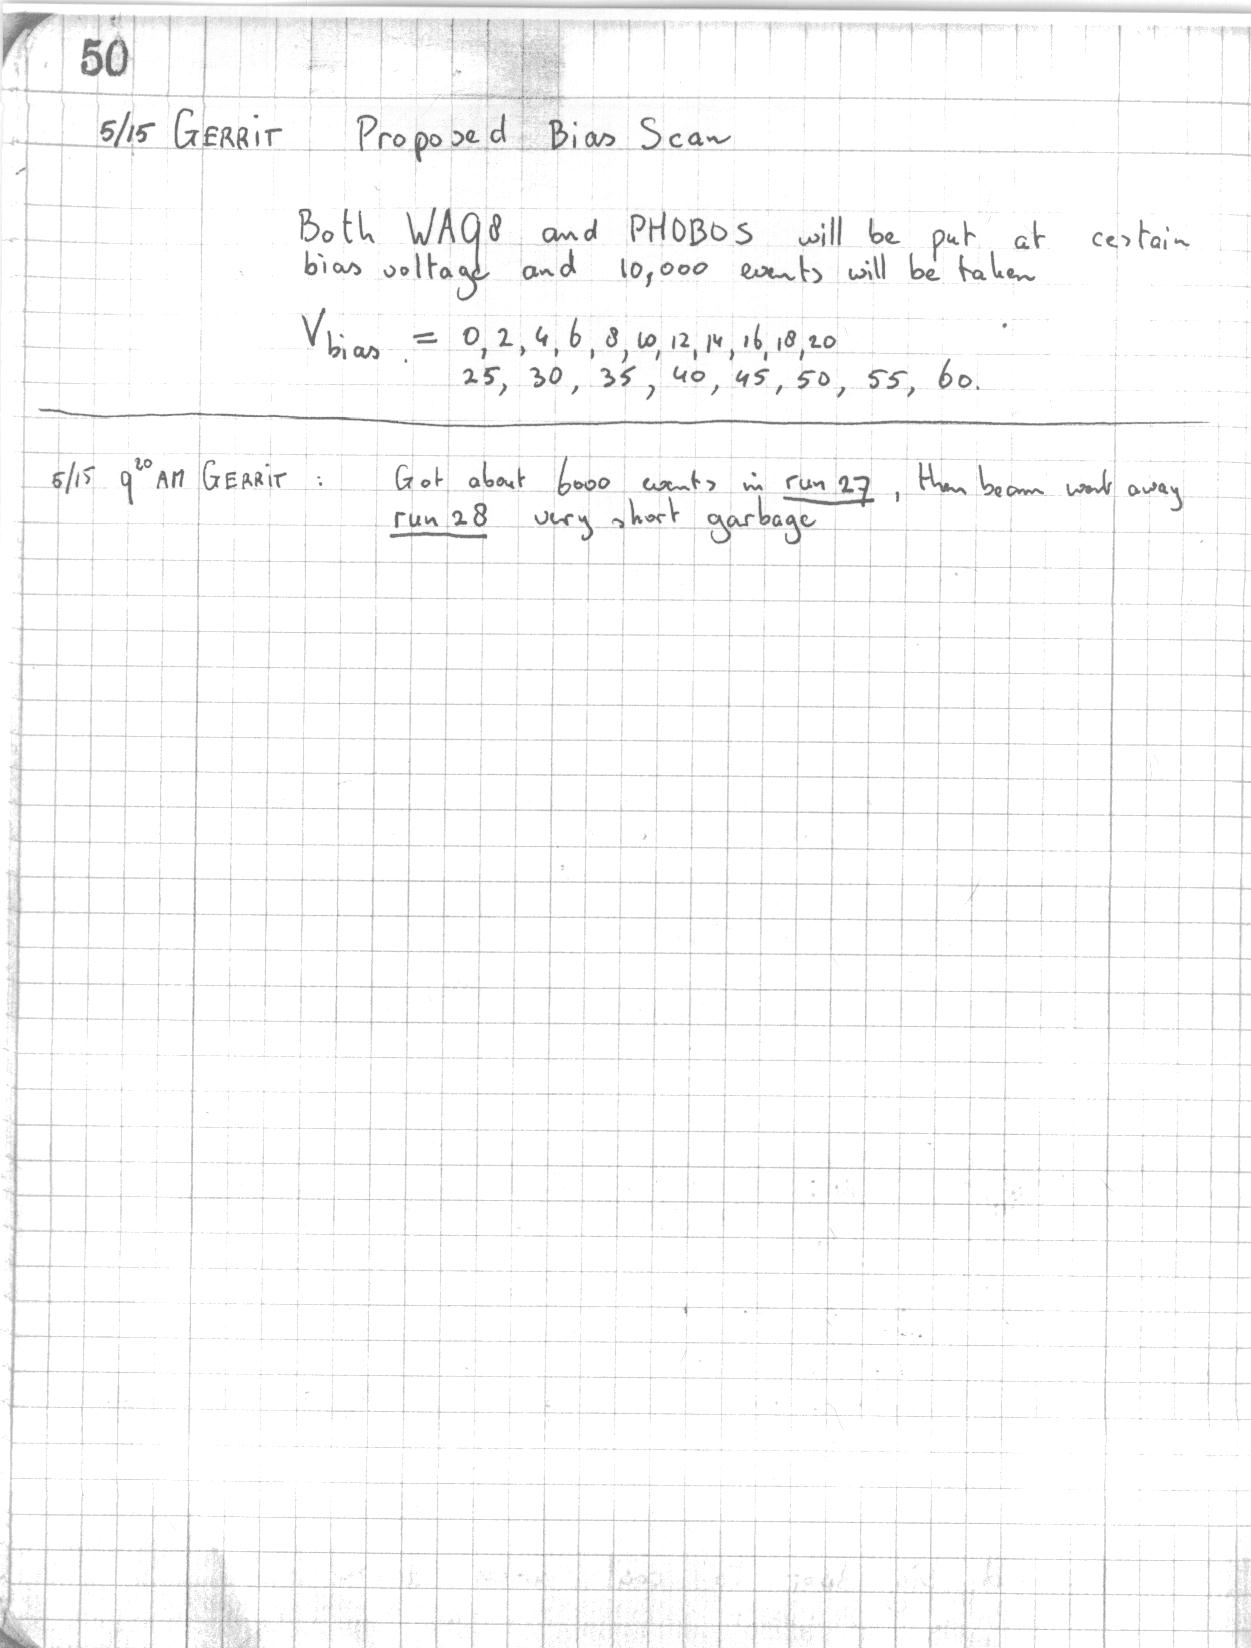 50
5/15 GERRIT Proposed Bias Scan
Both WA98 and PHOBOS will be put at certain
bias voltage and 10,000 events will be taken
Vbias = 0, 2, 4, 6, 8, 10, 12, 14, 16, 18, 20
25, 30, 35, 40, 45, 50, 55, 60.
5/15 9²⁰ AM GERRIT : Got about 6000 events in run 27, then beam went away
run 28 very short garbage